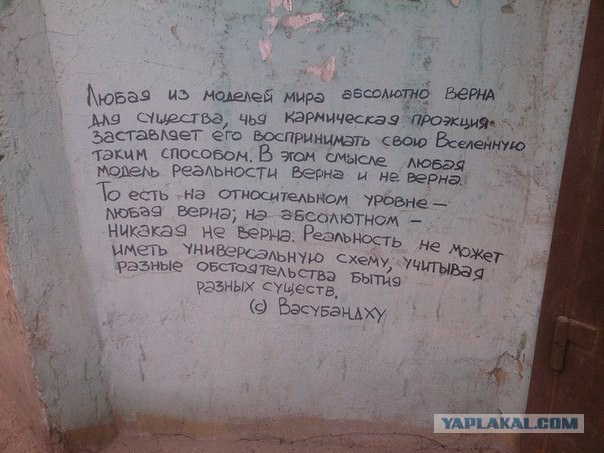 Любая из моделей мира абсолютно верна
для существа, чья кармическая проэкция
заставляет его воспринимать свою Вселенную
таким способом. В этом смысле любая
модель реальности верна и не верна.
То есть на относительном уровне –
любая верна; на абсолютном –
никакая не верна. Реальность не может
иметь универсальную схему, учитывая
разные обстоятельства бытия
разных существ.
(с) Васубандху
YAPLAKAL.COM